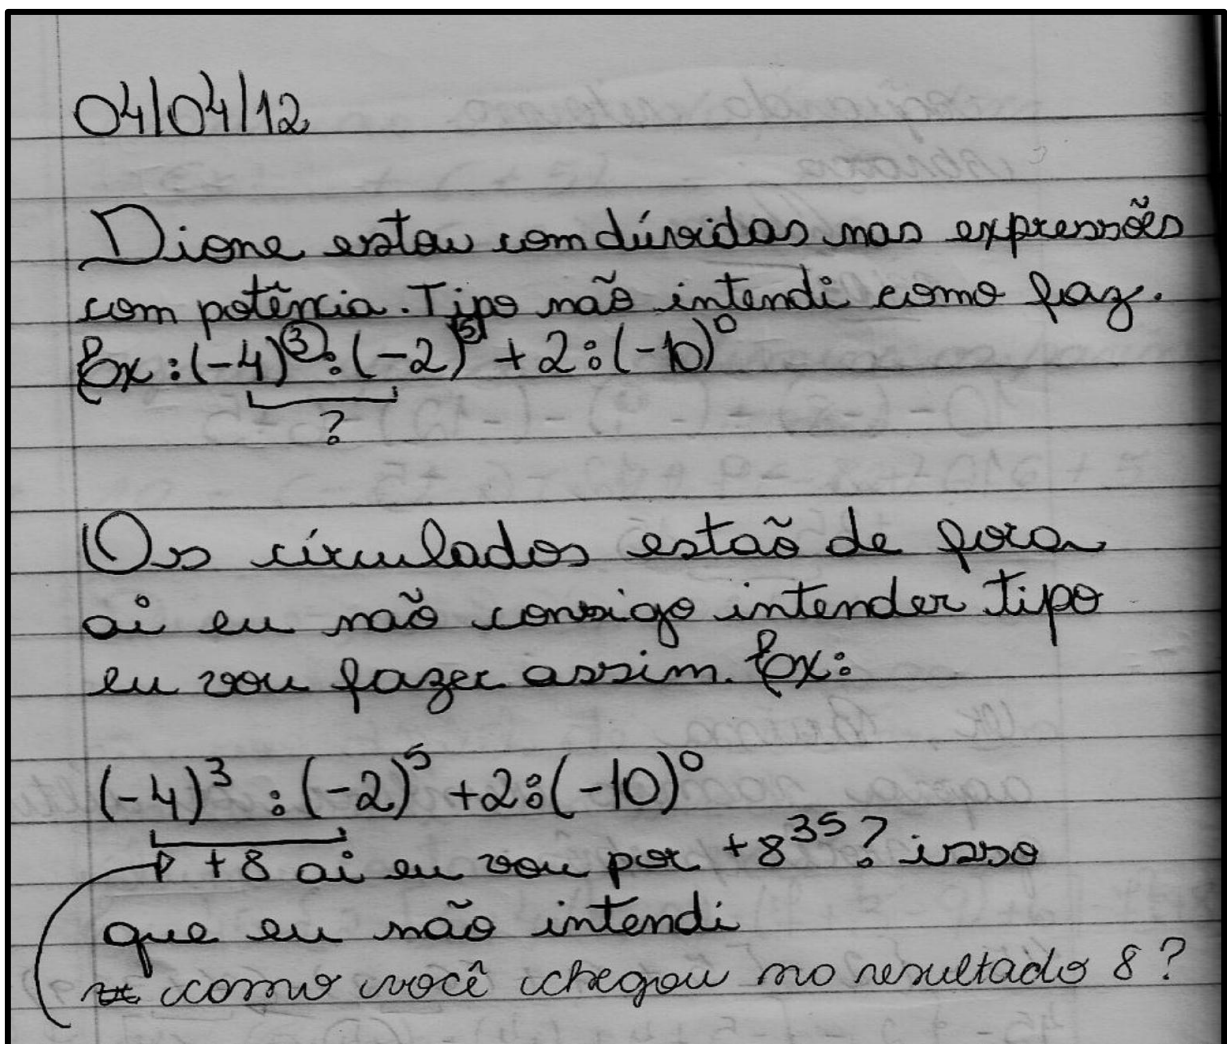 04/04/12
Dione estou com dúvidas nas expressões
com potência. Tipo não intendi como faz.
Ex: (-4)³ : (-2)⁵ + 2 : (-10)⁰
?
Os circulados estão de fora
ai eu não consigo intender tipo
eu vou fazer assim. Ex:
(-4)³ : (-2)⁵ + 2 : (-10)⁰
+8 ai eu vou por +8³⁵? isso
que eu não intendi
como você chegou no resultado 8?